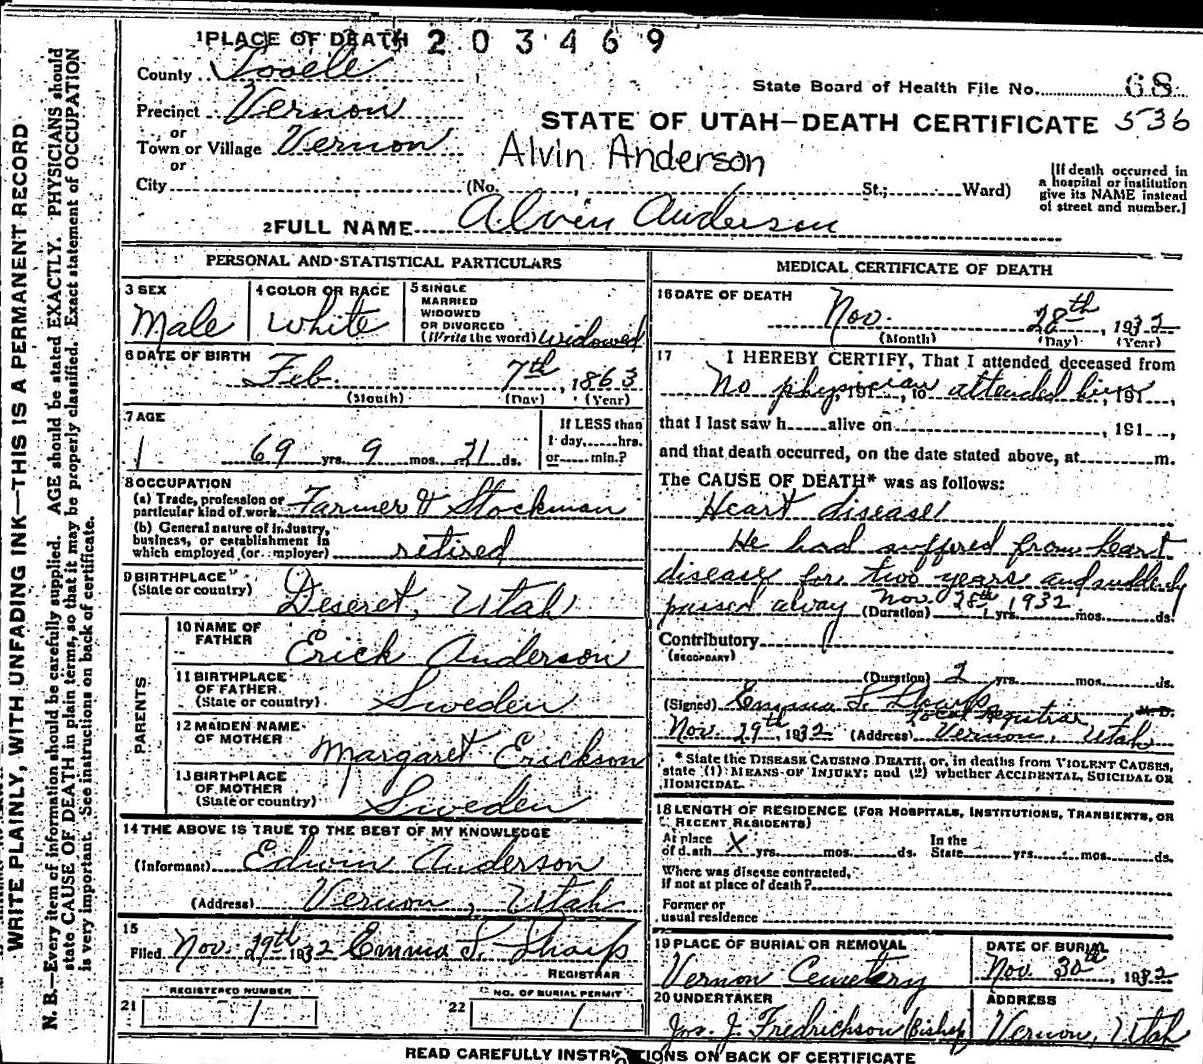 WRITE PLAINLY, WITH UNFADING INK—THIS IS A PERMANENT RECORD
N. B.—Every item of information should be carefully supplied. AGE should be stated EXACTLY. PHYSICIANS should
state CAUSE OF DEATH in plain terms, so that it may be properly classified. Exact statement of OCCUPATION
is very important. See instructions on back of certificate.
1 PLACE OF DEATH 203469
County Tooele
State Board of Health File No. 68
Precinct Vernon
STATE OF UTAH—DEATH CERTIFICATE 536
or
Town or Village Vernon
Alvin Anderson
or
City (No. St.; Ward)
[If death occurred in
a hospital or institution
give its NAME instead
of street and number.]
2 FULL NAME Alvin Anderson
PERSONAL AND STATISTICAL PARTICULARS
3 SEX
Male
4 COLOR OR RACE
White
5 SINGLE
MARRIED
WIDOWED
OR DIVORCED
(Write the word) Widowed
6 DATE OF BIRTH
Feb. 7th, 1863
(Month) (Day) (Year)
7 AGE
69 yrs. 9 mos. 21 ds.
If LESS than
1 day, hrs.
or min.?
8 OCCUPATION
(a) Trade, profession or
particular kind of work Farmer & Stockman
(b) General nature of industry,
business, or establishment in
which employed (or employer) retired
9 BIRTHPLACE
(State or country) Deseret, Utah
PARENTS
10 NAME OF
FATHER Erick Anderson
11 BIRTHPLACE
OF FATHER
(State or country) Sweden
12 MAIDEN NAME
OF MOTHER Margaret Erickson
13 BIRTHPLACE
OF MOTHER
(State or country) Sweden
14 THE ABOVE IS TRUE TO THE BEST OF MY KNOWLEDGE
(Informant) Edwin Anderson
(Address) Vernon, Utah
15
Filed Nov. 29th 1932 Emma S. Sharp
REGISTRAR
REGISTERED NUMBER
21 1
NO. OF BURIAL PERMIT
22 1
MEDICAL CERTIFICATE OF DEATH
16 DATE OF DEATH
Nov. 28th, 1932
(Month) (Day) (Year)
17 I HEREBY CERTIFY, That I attended deceased from
No physician attended him
, 191 , to , 191 ,
that I last saw h alive on , 191 ,
and that death occurred, on the date stated above, at m.
The CAUSE OF DEATH* was as follows:
Heart disease
He had suffered from heart
disease for two years and suddenly
passed away Nov. 28th, 1932
(Duration) yrs. mos. ds.
Contributory
(SECONDARY)
(Duration) 2 yrs. mos. ds.
(Signed) Emma S. Sharp, M. D.
Local Registrar
Nov. 29th, 1932 (Address) Vernon, Utah
* State the DISEASE CAUSING DEATH, or, in deaths from VIOLENT CAUSES,
state (1) MEANS OF INJURY; and (2) whether ACCIDENTAL, SUICIDAL OR
HOMICIDAL.
18 LENGTH OF RESIDENCE (FOR HOSPITALS, INSTITUTIONS, TRANSIENTS, OR
RECENT RESIDENTS)
At place
of death X yrs. mos. ds.
In the
State yrs. mos. ds.
Where was disease contracted,
if not at place of death?
Former or
usual residence
19 PLACE OF BURIAL OR REMOVAL
Vernon Cemetery
DATE OF BURIAL
Nov. 30th, 1932
20 UNDERTAKER
Jos. J. Fredrickson (Bishop)
ADDRESS
Vernon, Utah
READ CAREFULLY INSTRUCTIONS ON BACK OF CERTIFICATE